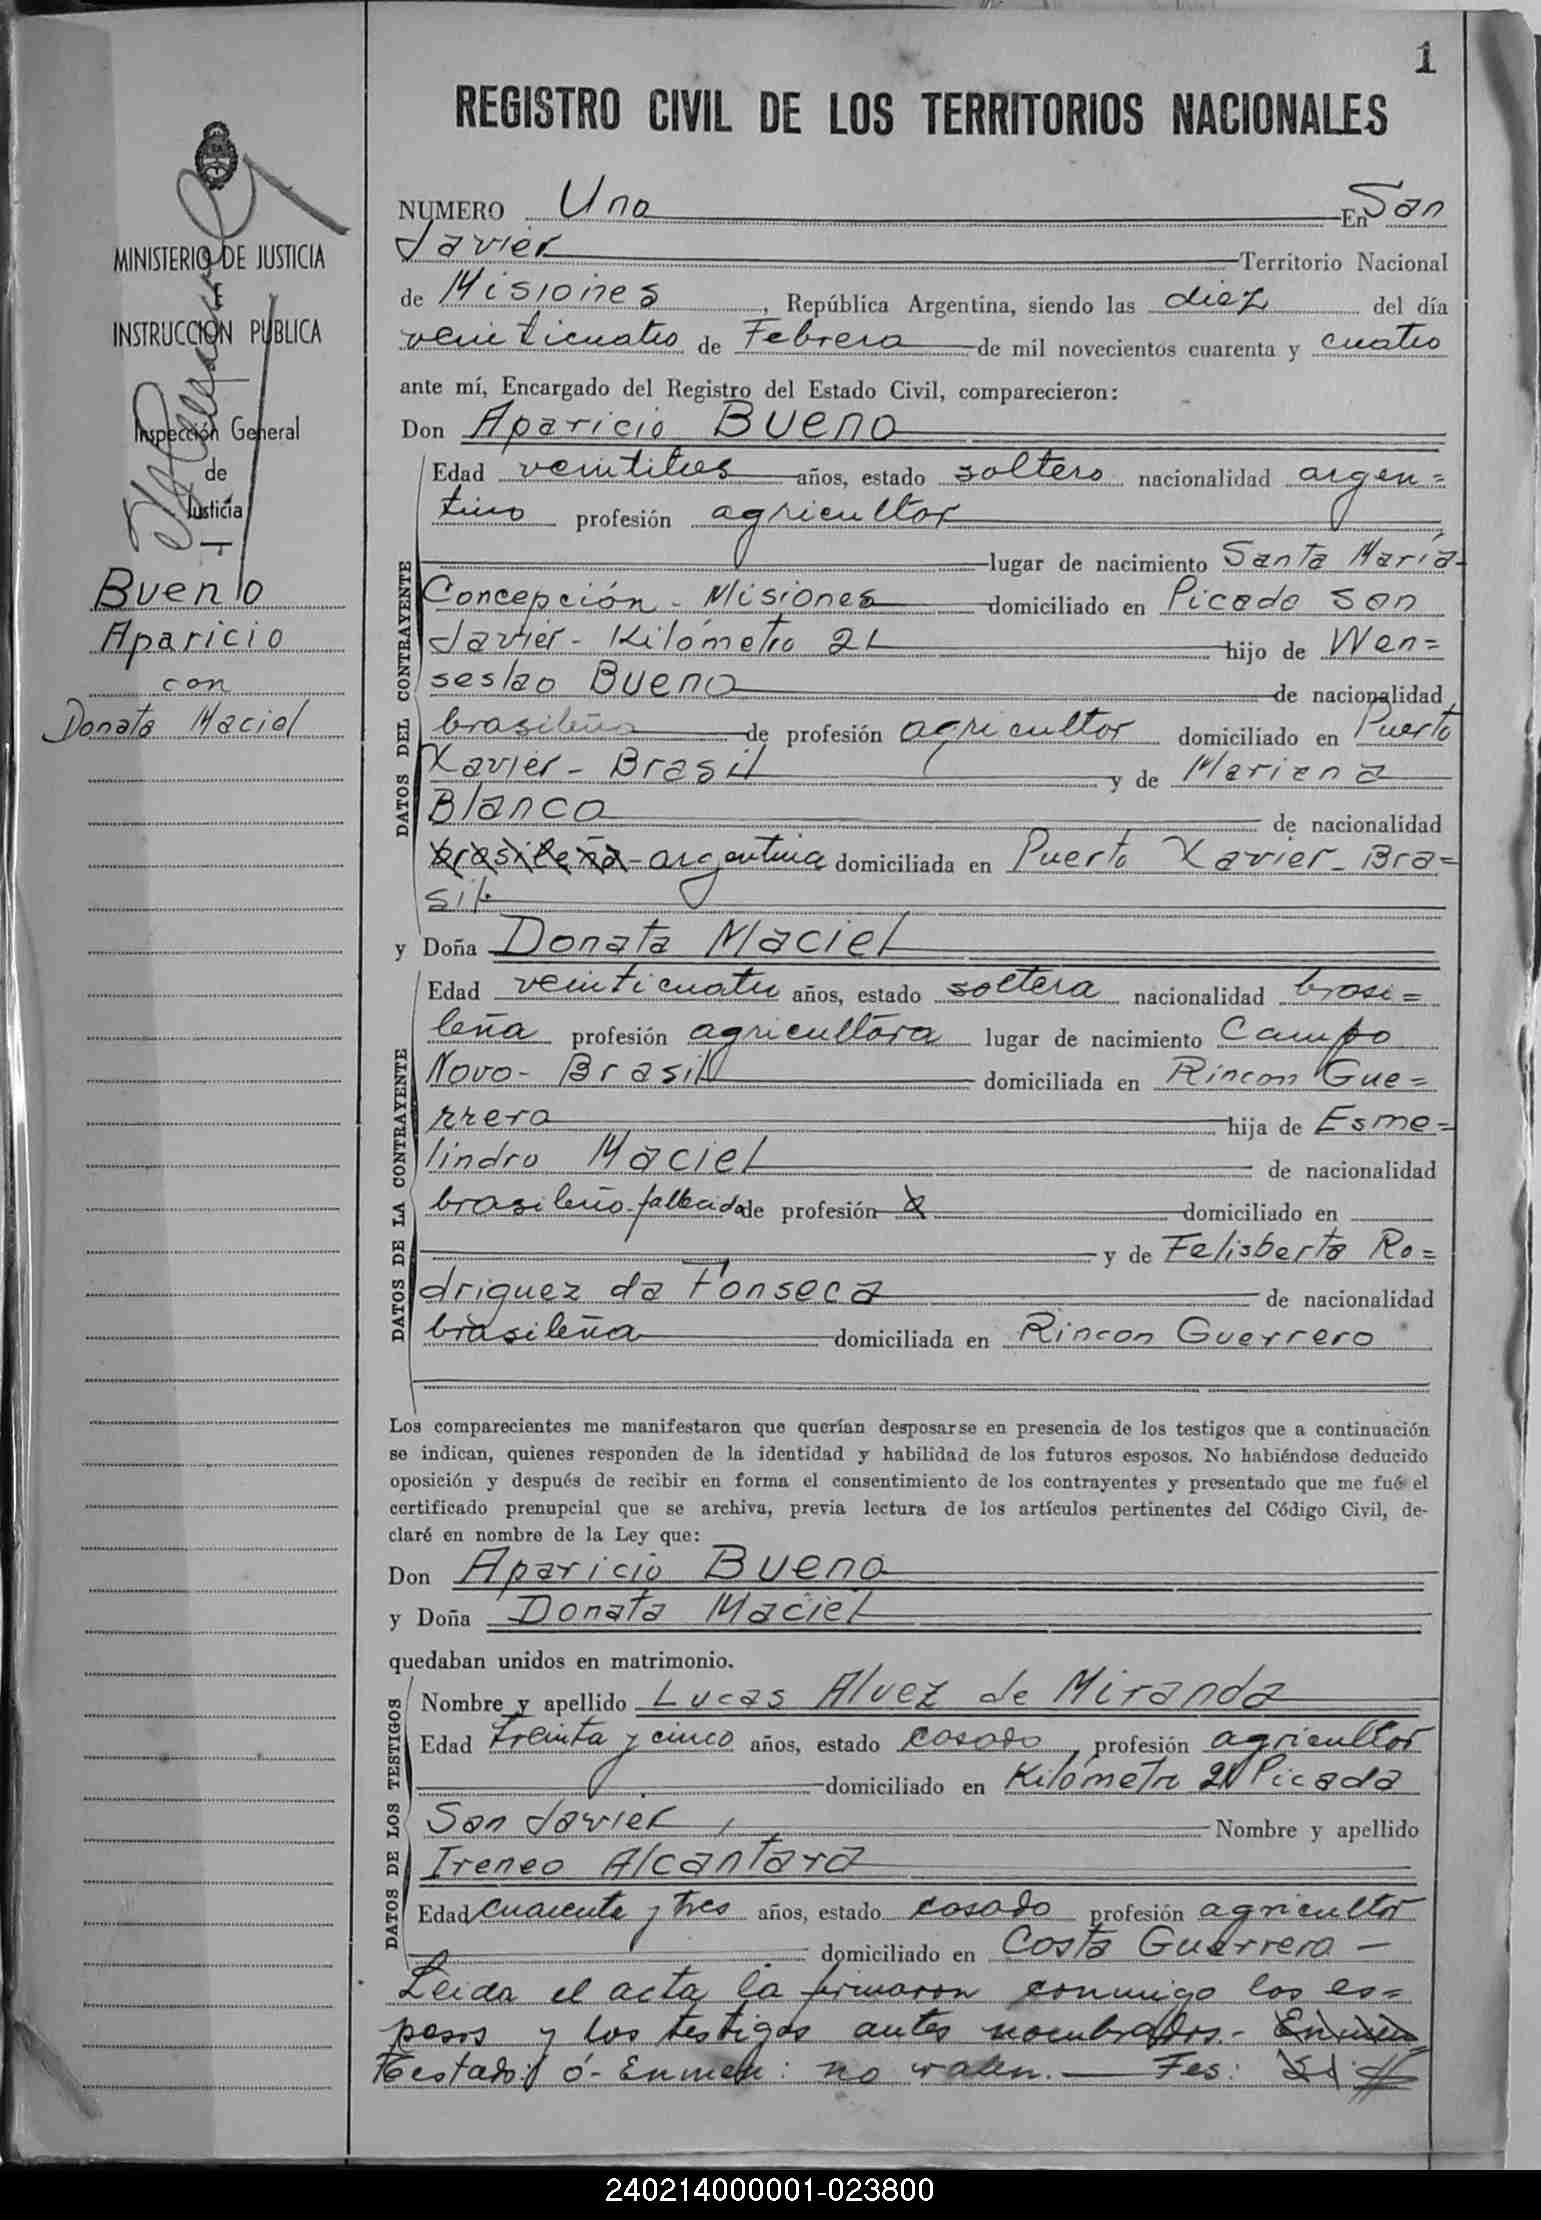 1
REGISTRO CIVIL DE LOS TERRITORIOS NACIONALES
MINISTERIO DE JUSTICIA
E
INSTRUCCIÓN PÚBLICA
Inspección General
de
Justicia
Bueno
Aparicio
con
Donata Maciel
NUMERO Uno En San
Javier Territorio Nacional
de Misiones, República Argentina, siendo las diez del día
veinticuatro de Febrero de mil novecientos cuarenta y cuatro
ante mí, Encargado del Registro del Estado Civil, comparecieron:
Don Aparicio Bueno
DATOS DEL CONTRAYENTE
Edad veintitres años, estado soltero nacionalidad argen=
tino profesión agricultor
lugar de nacimiento Santa María-
Concepción - Misiones domiciliado en Picada San
Javier - Kilómetro 21 hijo de Wen=
seslao Bueno de nacionalidad
brasileña de profesión agricultor domiciliado en Puerto
Xavier - Brasil y de Mariana
Blanco de nacionalidad
brasileña - argentina domiciliada en Puerto Xavier - Bra=
sil.
y Doña Donata Maciel
DATOS DE LA CONTRAYENTE
Edad veinticuatro años, estado soltera nacionalidad brasi=
leña profesión agricultora lugar de nacimiento Campo
Novo - Brasil domiciliada en Rincon Gue=
rrero hija de Esme=
lindro Maciel de nacionalidad
brasileño - fallecido de profesión domiciliado en
y de Felisberta Ro=
driguez da Fonseca de nacionalidad
brasileña domiciliada en Rincon Guerrero
Los comparecientes me manifestaron que querían desposarse en presencia de los testigos que a continuación
se indican, quienes responden de la identidad y habilidad de los futuros esposos. No habiéndose deducido
oposición y después de recibir en forma el consentimiento de los contrayentes y presentado que me fué el
certificado prenupcial que se archiva, previa lectura de los artículos pertinentes del Código Civil, de-
claré en nombre de la Ley que:
Don Aparicio Bueno
y Doña Donata Maciel
quedaban unidos en matrimonio.
DATOS DE LOS TESTIGOS
Nombre y apellido Lucas Alvez de Miranda
Edad treinta y cinco años, estado casado, profesión agricultor
domiciliado en Kilómetro 21 Picada
San Javier, Nombre y apellido
Ireneo Alcantara
Edad cuarenta y tres años, estado casado profesión agricultor
domiciliado en Costa Guerrero -
Leida el acta la firmaron conmigo los es=
posos y los testigos antes nombrados.-
Testado: ó - Enmen: no valen. — Fes:
240214000001-023800